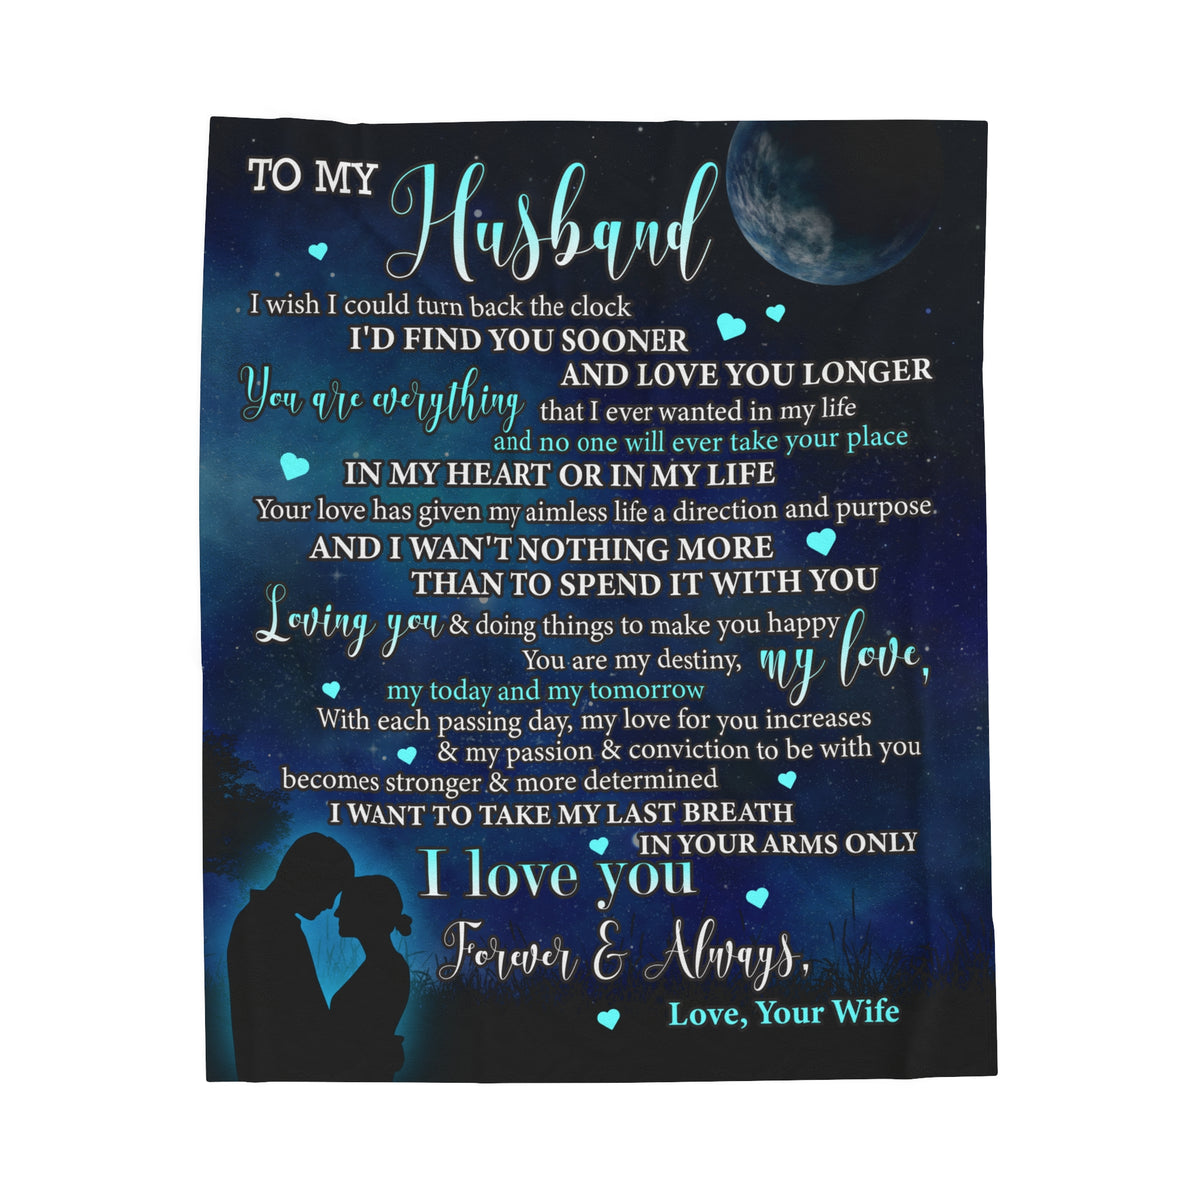 TO MY Husband
I wish I could turn back the clock
I'D FIND YOU SOONER
AND LOVE YOU LONGER
You are everything that I ever wanted in my life
and no one will ever take your place
IN MY HEART OR IN MY LIFE
Your love has given my aimless life a direction and purpose.
AND I WAN'T NOTHING MORE
THAN TO SPEND IT WITH YOU
Loving you & doing things to make you happy
You are my destiny, my love,
my today and my tomorrow
With each passing day, my love for you increases
& my passion & conviction to be with you
becomes stronger & more determined
I WANT TO TAKE MY LAST BREATH
IN YOUR ARMS ONLY
I love you
Forever & Always,
Love, Your Wife